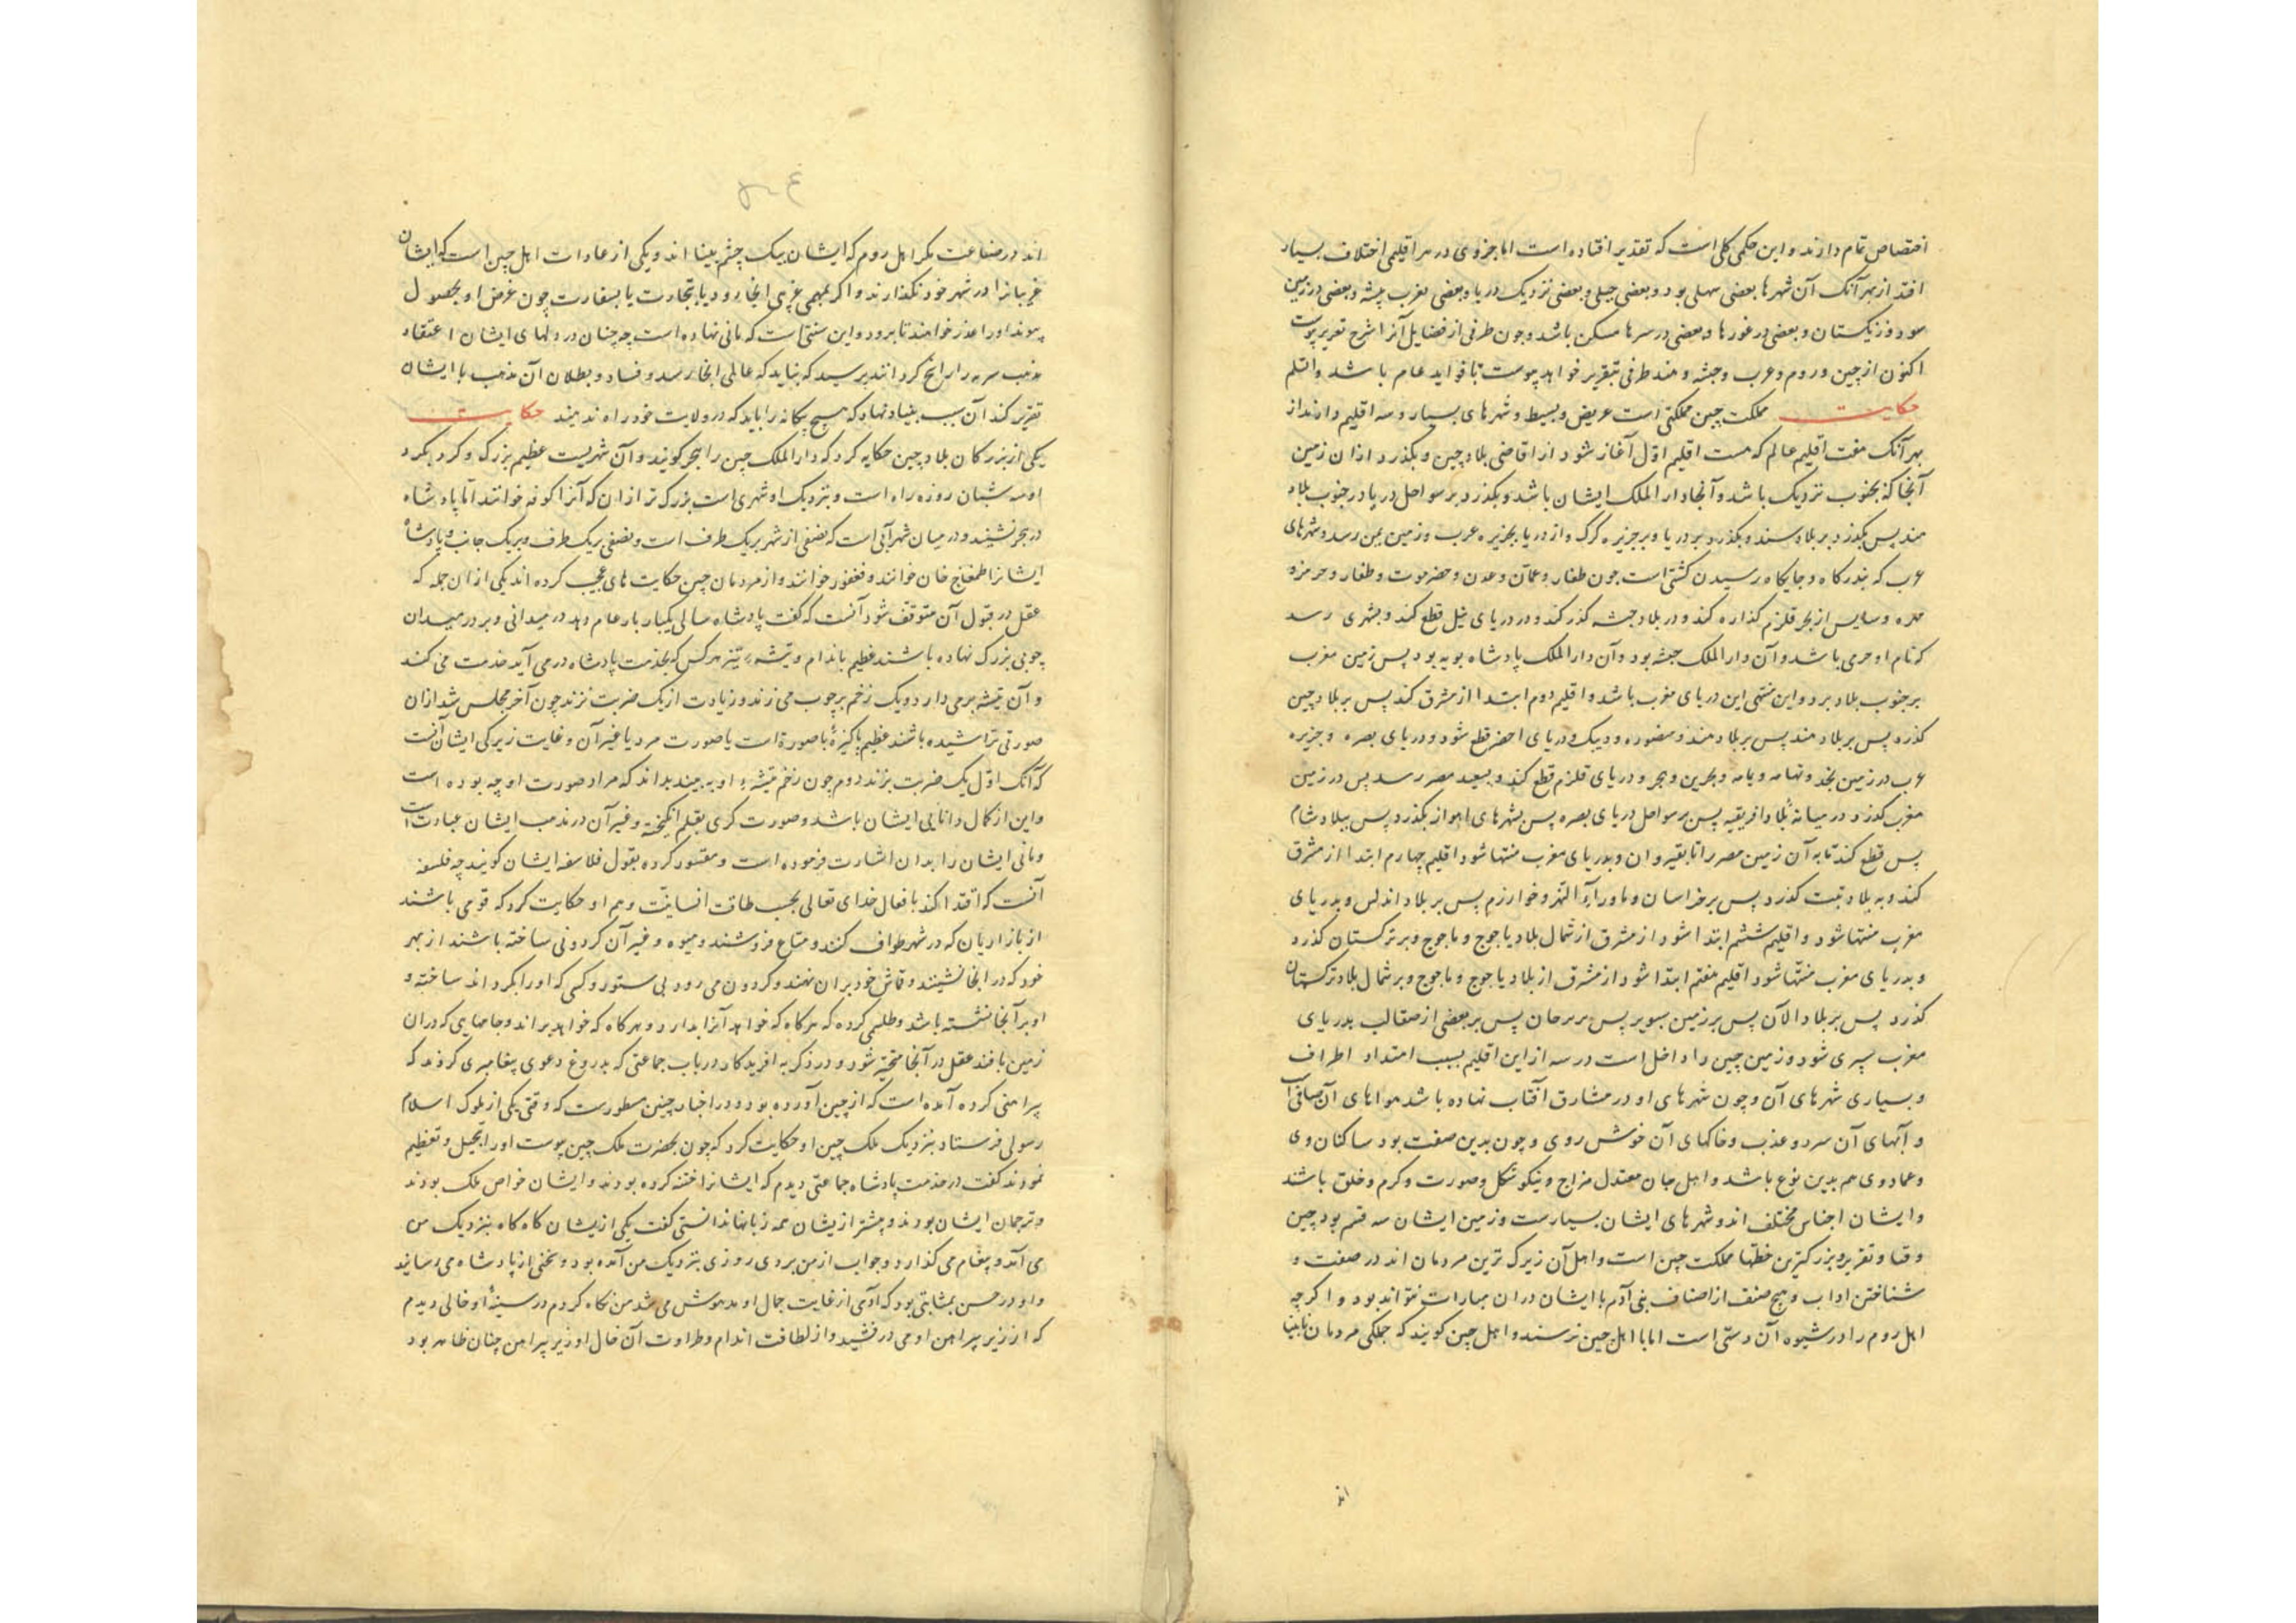 اختصاص تمام دارند و این حکمی کلی است که تقدیر افتاده است اما جزوی در هر اقلیمی اختلاف بسیار
افتد از بهر آنک آن شهرها بعضی سهلی بود و بعضی جبلی و بعضی نزدیک دریا و بعضی بقرب بیشه و بعضی در زمین
و بعضی در غورها و بعضی در سرها مسکن باشد و چون طرفی از فضایل آنرا شرح تقریر پیوست
اکنون از چین و روم و عرب و حبشه و هند طرفی بتقریر خواهد پیوست تا فواید عام باشد
حکایت مملکت چین مملکتی است عریض و بسیط و شهرهای بسیار و سه اقلیم دارند از
بهر آنک هفت اقلیم عالم که هست اقلیم اول آغاز شود از اقاصی بلاد چین و بگذرد از آن زمین
آنجا که بجنوب نزدیک باشد و آنجا دار الملک ایشان باشد و بگذرد بر سواحل دریا در جنوب بلاد
هند پس بگذرد بر بلاد سند و بگذرد بر دریا و بر جزیره کرک و از دریا بجزیره عرب و زمین یمن رسد و شهرهای
عرب که بندرگاه و جایگاه رسیدن کشتی است چون ظفار و عمان و عدن و حضرموت و
از بحر قلزم گذاره کند و در بلاد حبشه گذر کند و در دریای نیل قطع کند و بشهری رسد
که نام او حرمی باشد و آن دار الملک حبشه بود و آن دار الملک پادشاه نوبه بود پس زمین مغرب
بر جنوب بلاد بربر و این منتهی این دریای مغرب باشد و اقلیم دوم ابتدا از مشرق کند پس بر بلاد چین
گذرد پس بر بلاد هند پس بر بلاد هند و منصوره و دیبک و دریای اخضر قطع شود و دریای بصره و جزیره
عرب در زمین نجد و تهامه و یمامه و بحرین و هجر و دریای قلزم قطع کند و بصعید مصر رسد پس در زمین
مغرب گذرد و در میانه بلاد افریقیه پس بر سواحل دریای بصره پس بشهرهای اهواز بگذرد پس ببلاد شام
پس قطع کند تا به آن زمین مصر را تا بقیروان و بدریای مغرب منتها شود اقلیم چهارم ابتدا از مشرق
کند و به بلاد تبت گذرد پس بر خراسان و ماوراء النهر و خوارزم پس بر بلاد اندلس و بدریای
مغرب منتها شود و اقلیم ششم ابتدا شود از مشرق از شمال بلاد یاجوج و ماجوج و بر ترکستان گذرد
و بدریای مغرب منتها شود اقلیم هفتم ابتدا شود از مشرق از بلاد یاجوج و ماجوج و بر شمال بلاد ترکستان
گذرد پس بر بلاد الان پس بر زمین سویر پس بر برجان پس بر بعضی از صقالب بدریای
مغرب سپری شود و زمین چین را داخل است در سه از این اقلیم بسبب امتداد اطراف
و بسیاری شهرهای آن و چون شهرهای او در مشارق آفتاب نهاده باشد هواهای آن صافی است
و آبهای آن سرد و عذب و خاکهای آن خوش روی و چون بدین صفت بود ساکنان وی
و عماد وی هم بدین نوع باشد و اهل جان معتدل مزاج و نیکو شکل و صورت و کرم و خلق باشند
و ایشان اجناس مختلف اند و شهرهای ایشان بسیارست و زمین ایشان سه قسم بود چین
و قتا و تغریر و بزرگترین خطتها مملکت چین است و اهل آن زیرک ترین مردمان اند در صفت و
شناختن اداب و هیچ صنف از اصناف بنی آدم با ایشان در ان مبارات نتواند بود و اگرچه
اهل روم را در شیوه آن دستی است اما با اهل چین نرسند و اهل چین گویند که جملگی مردمان نابینا
اند
اند در صناعت مگر اهل روم که ایشان بیک چشم بینا اند و یکی از عادات اهل چین است که ایشان
غریبانرا در شهر خود نگذارند و اگر بمهمی غریبی آنجا رود یا بتجارت یا بسفارت چون غرض او بحصول
پیوند او را عذر خواهند تا برود و این سنتی است که مانی نهاده است چه چنان در دلهای ایشان اعتقاد
مذهب را راسخ گردانند بترسید که نباید که عالمی آنجا رسد و فساد و بطلان آن مذهب با ایشان
تقریر کند آن سبب بنیاد نهاد که هیچ بیگانه را باید که در ولایت خود راه ندهند حکایت
یکی از بزرگان بلاد چین حکایه کرد که دار الملک چین را بیجر گویند و آن شهریست عظیم بزرگ و گرد بگرد
او سه شبان روزه راه است و بنزدیک او شهری است بزرگ تر از ان که آنرا کوفه خوانند اما پادشاه
در بیجر نشیند و در میان شهر آبی است که نصفی از شهر بریک طرف است و نصفی بریک طرف و بریک جانب و پادشاه
ایشانرا طمغاج خان خوانند و فغفور خوانند و از مردمان چین حکایت های عجیب کرده اند یکی از ان جمله که
عقل در قبول آن متوقف شود آنست که گفت پادشاه سالی یکبار بار عام دهد در میدانی و بر در میدان
چوبی بزرگ نهاده باشند عظیم باندام و تیشه تیز هر کس که بخدمت پادشاه در می آید خدمت می کند
و آن تیشه برمی دارد و یک زخم بر چوب می زند و زیادت از یک ضربت نزند چون آخر مجلس شد از ان
صورتی تراشیده باشند عظیم پاکیزه با صورة است یا صورت مرد یا غیر آن و غایت زیرکی ایشان آنست
که آنک اول یک ضربت بزند دوم چون زخم تیشه او به بیند بداند که مراد صورت او چه بوده است
و این از کمال دانایی ایشان باشد و صورت گری بقلم انگیخته و غیر آن در مذهب ایشان عبادت است
و مانی ایشان را بدان اشارت فرموده است و مقتدر کرده بقول فلاسفه ایشان گویند چه فلسفه
آنست که اقتدا کند بافعال خدای تعالی بحسب طاقت انسانیت و هم او حکایت کرد که قومی باشند
از بازاریان که در شهر طواف کنند و متاع فروشند و میوه و غیر آن گردونی ساخته باشند از بهر
خود که در آنجا نشینند و قماش خود بر ان نهند و گردون می رود بی ستور و کسی که او را بگرداند ساخته و
او بر آنجا نشسته باشد و طلسمی کرده که هرگاه که خواهد آنرا بدارد و هرگاه که خواهد براند و جامهایی که در ان
زمین بافند عقل در آنجا متحیر شود و در ذکر به افرید کاد در باب جماعتی که بدروغ دعوی پیغامبری کردند که
پیراهنی کرده آمده است که از چین آورده بود و در اخبار چنین مسطورست که وقتی یکی از ملوک اسلام
رسولی فرستاد بنزدیک ملک چین او حکایت کرد که چون بحضرت ملک چین پیوست او را تبجیل و تعظیم
نمودند گفت در خدمت پادشاه جماعتی دیدم که ایشانرا اخته کرده بودند و ایشان خواص ملک بودند
و ترجمان ایشان بودند و بیشتر از یشان همه زبانها دانستی گفت یکی از یشان گاه گاه بنزدیک من
می آمد و پیغام می گذارد و جواب از من بردی روزی بنزدیک من آمده بود و سخنی از پادشاه می رسانید
و او در حسن بمثابتی بود که آدمی از غایت جمال او مدهوش می شد من نگاه کردم در سینه او خالی دیدم
که از زیر پیراهن او می درفشید و از لطافت اندام و طراوت آن خال او زیر پیراهن چنان ظاهر بود